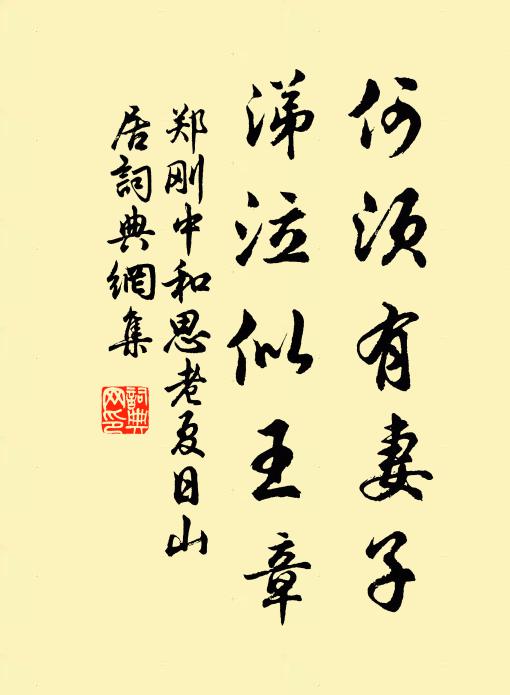 何须有妻子
涕泣似王章
郑刚中和思老夏日山
居詞典網集
詞典
网印